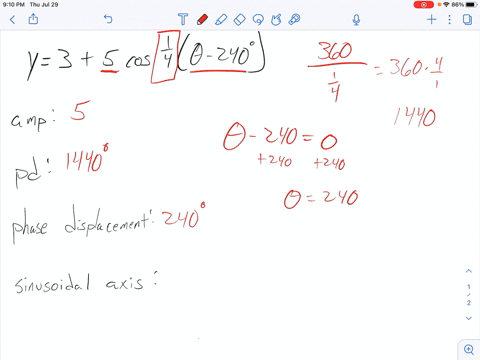 9:10 PM Thu Jul 29
86%
y = 3 + 5 cos 1/4 (θ - 240°)
360 / 1/4 = 360 · 4/1
1440
amp: 5
θ - 240 = 0
+240 +240
pd: 1440°
θ = 240
phase displacement: 240°
sinusoidal axis:
1
/
2